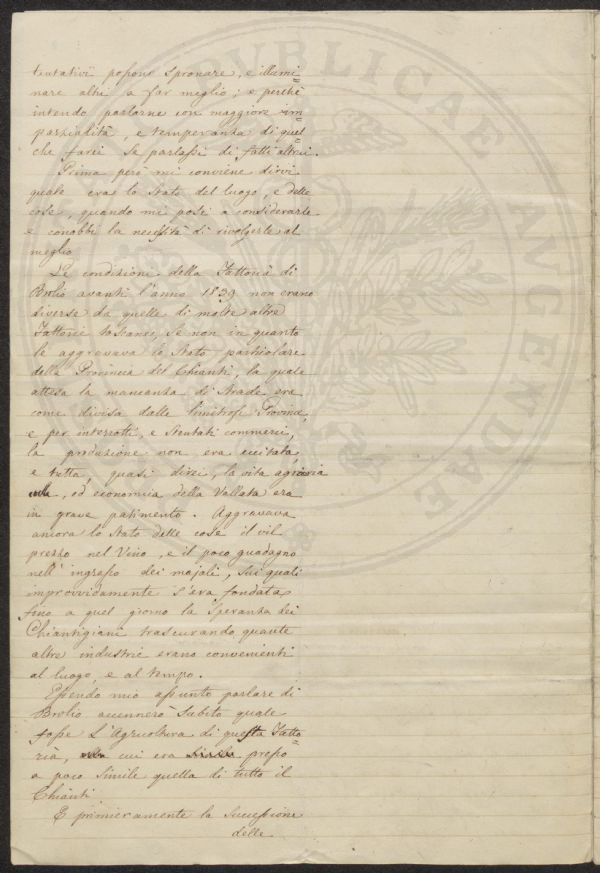 tentativi possono spronare, e illumi=
nare altri a far meglio; e perchè
intendo parlarne con maggiore im=
parzialità, e temperanza di quel=
che farei se parlassi di fatti altrui.
Prima però mi conviene dirvi
quale era lo Stato del luogo, e delle
cose, quando mi posi a considerarle
e conobbi la necessità di rivolgerle al
meglio
Le condizioni della Fattoria di
Brolio avanti l'anno 1839 non erano
diverse da quelle di molte altre
Fattorie toscane, se non in quanto
le aggravava lo Stato particolare
della Provincia del Chianti, la quale
attesa la mancanza di Strade era
come divisa dalle limitrofe Provincie,
e per interrotti, e stentati commerci,
la produzione non era eccitata,
e tutta quasi direi, la vita agraria
, ed economica della Vallata era
in grave patimento. Aggravava
ancora lo Stato delle cose il vil
prezzo nel Vino, e il poco guadagno
nell'ingrasso dei majali, sui quali
improvvidamente s'era fondata
fino a quel giorno la Speranza dei
Chiantigiani trascurando quante
altre industrie erano convenienti
al luogo, e al tempo.
Essendo mio assunto parlare di
Brolio accennerò Subito quale
fosse l'Agricoltura di questa Fatto=
ria, cui era presso
a poco Simile quella di tutto il
Chianti
E primieramente la Successione
delle
PVBLICAE AVGENDAE